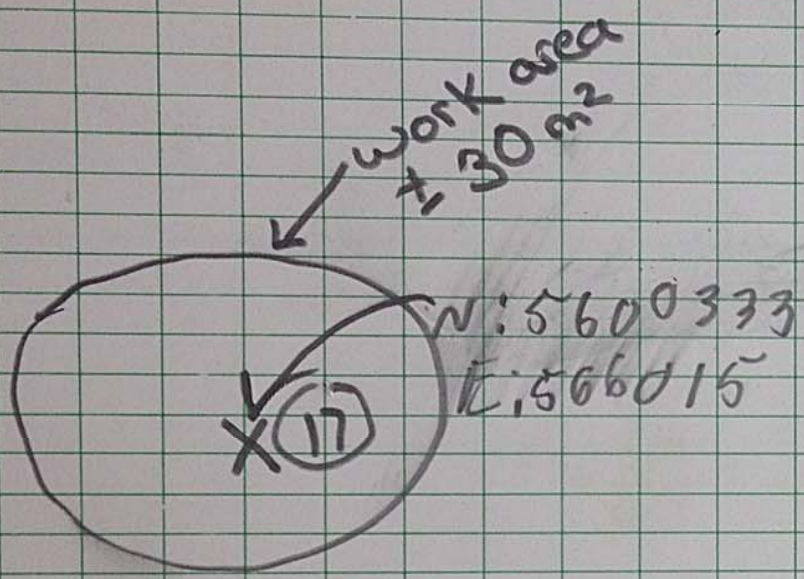 work area
± 30 m²
N: 5600333
E: 566015
X 17